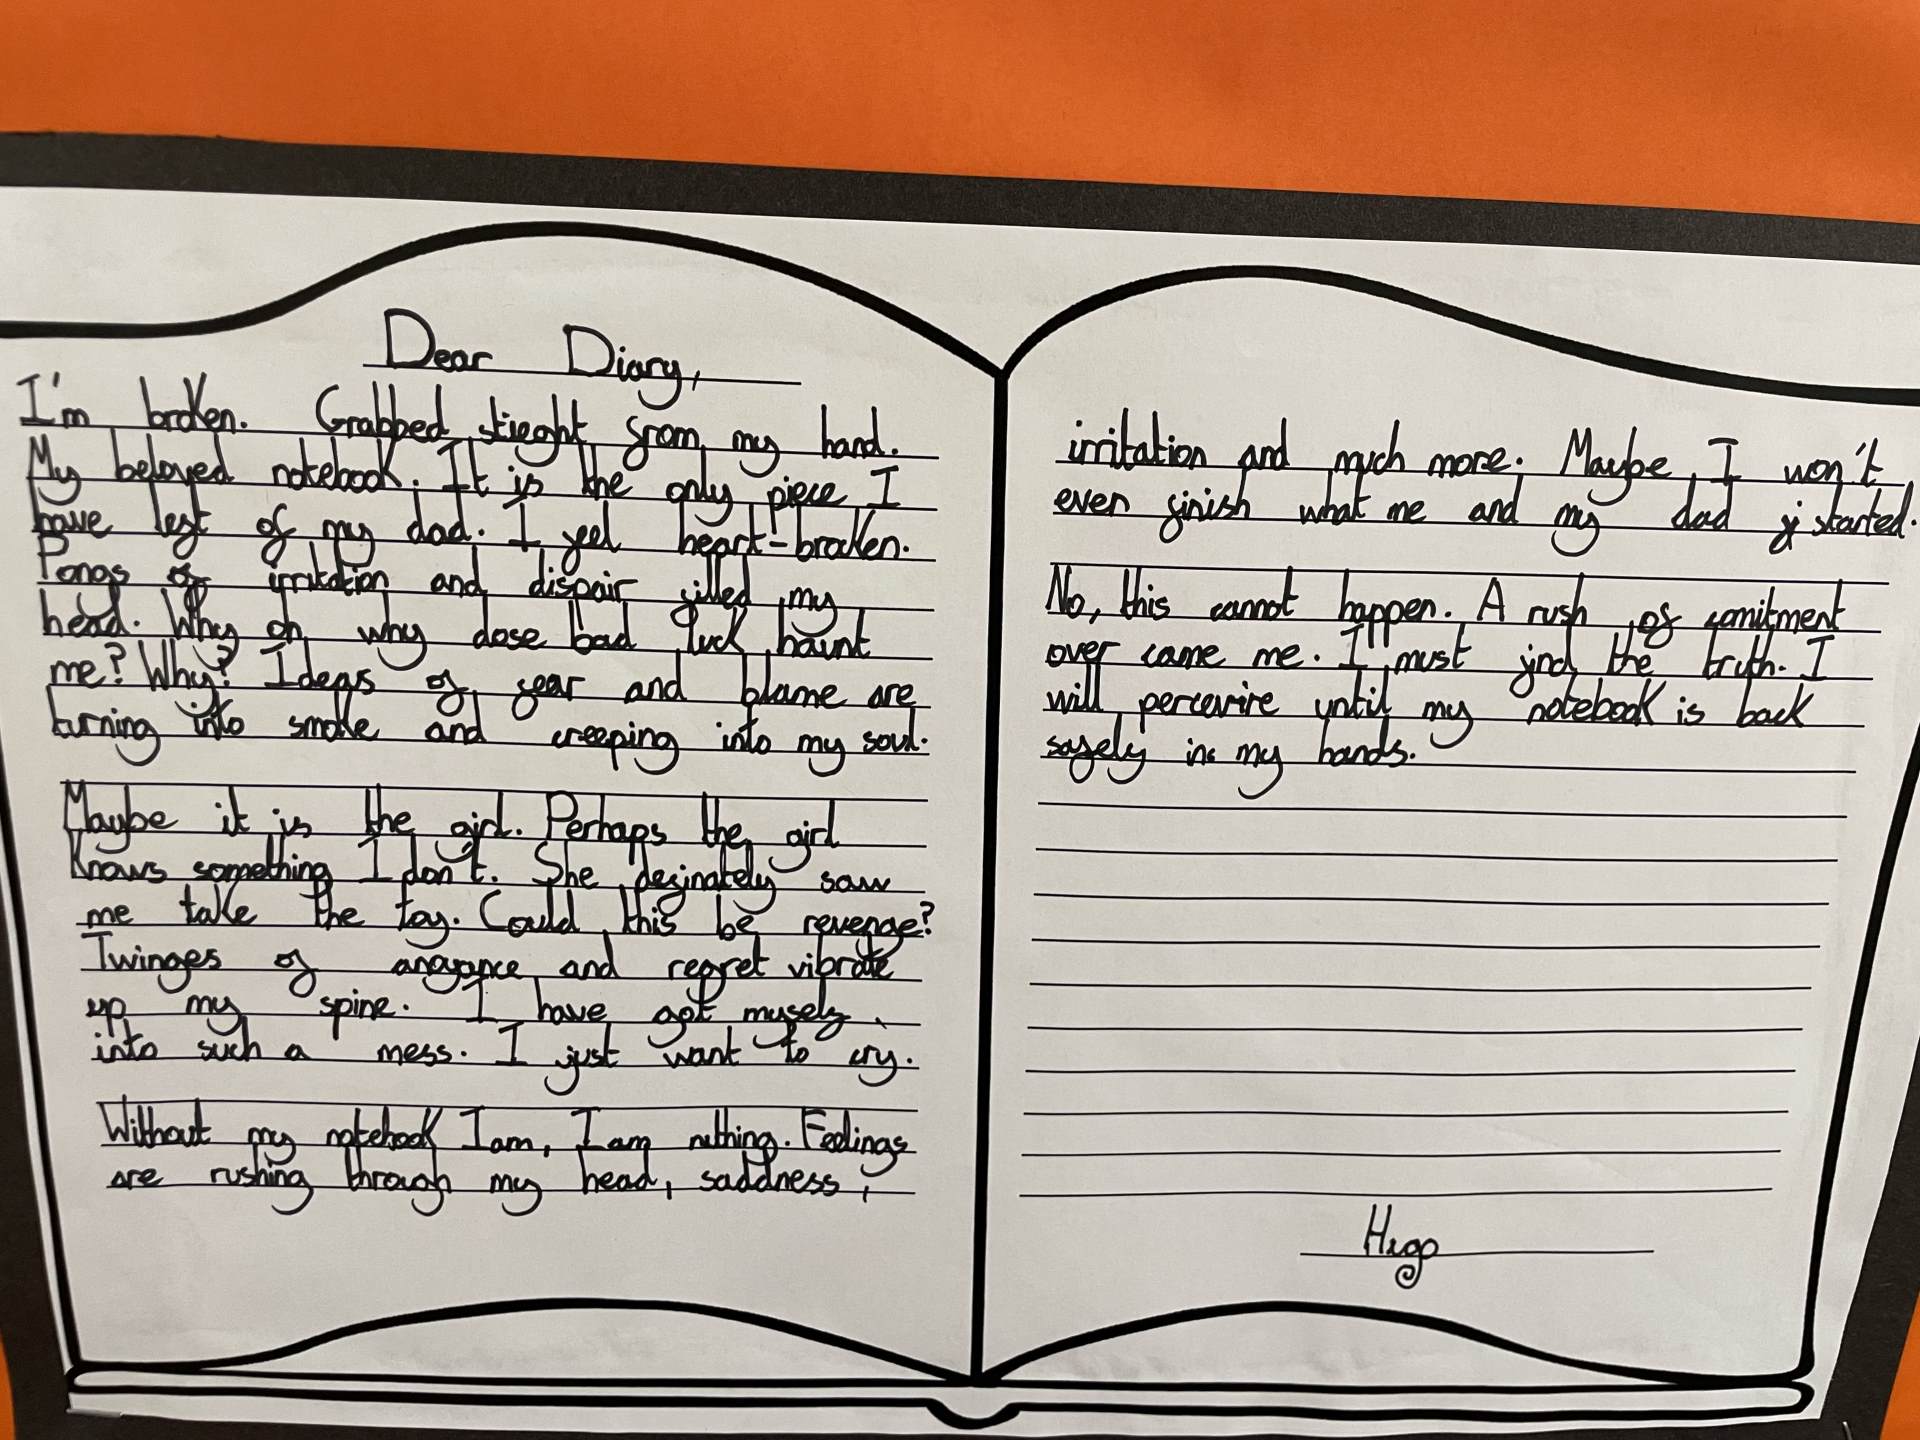 Dear Diary,
I'm broken. Grabbed stieght from my hand.
My beloved notebook. It is the only piece I
have left of my dad. I feel heart-broken.
Pangs of irritation and dispair filled my
head. Why oh why dose bad luck haunt
me? Why? Ideas of fear and blame are
turning into smoke and creeping into my soul.
Maybe it is the girl. Perhaps the girl
knows something I don't. She definately saw
me take the toy. Could this be revenge?
Twinges of anoyance and regret vibrate
up my spine. I have got mysely
into such a mess. I just want to cry.
Without my notebook I am, I am nothing. Feelings
are rushing through my head, saddness,
irritation and much more. Maybe I won't
even finish what me and my dad started.
No, this cannot happen. A rush of comitment
over came me. I must find the truth. I
will percevire until my notebook is back
safely in my hands.
Hugo